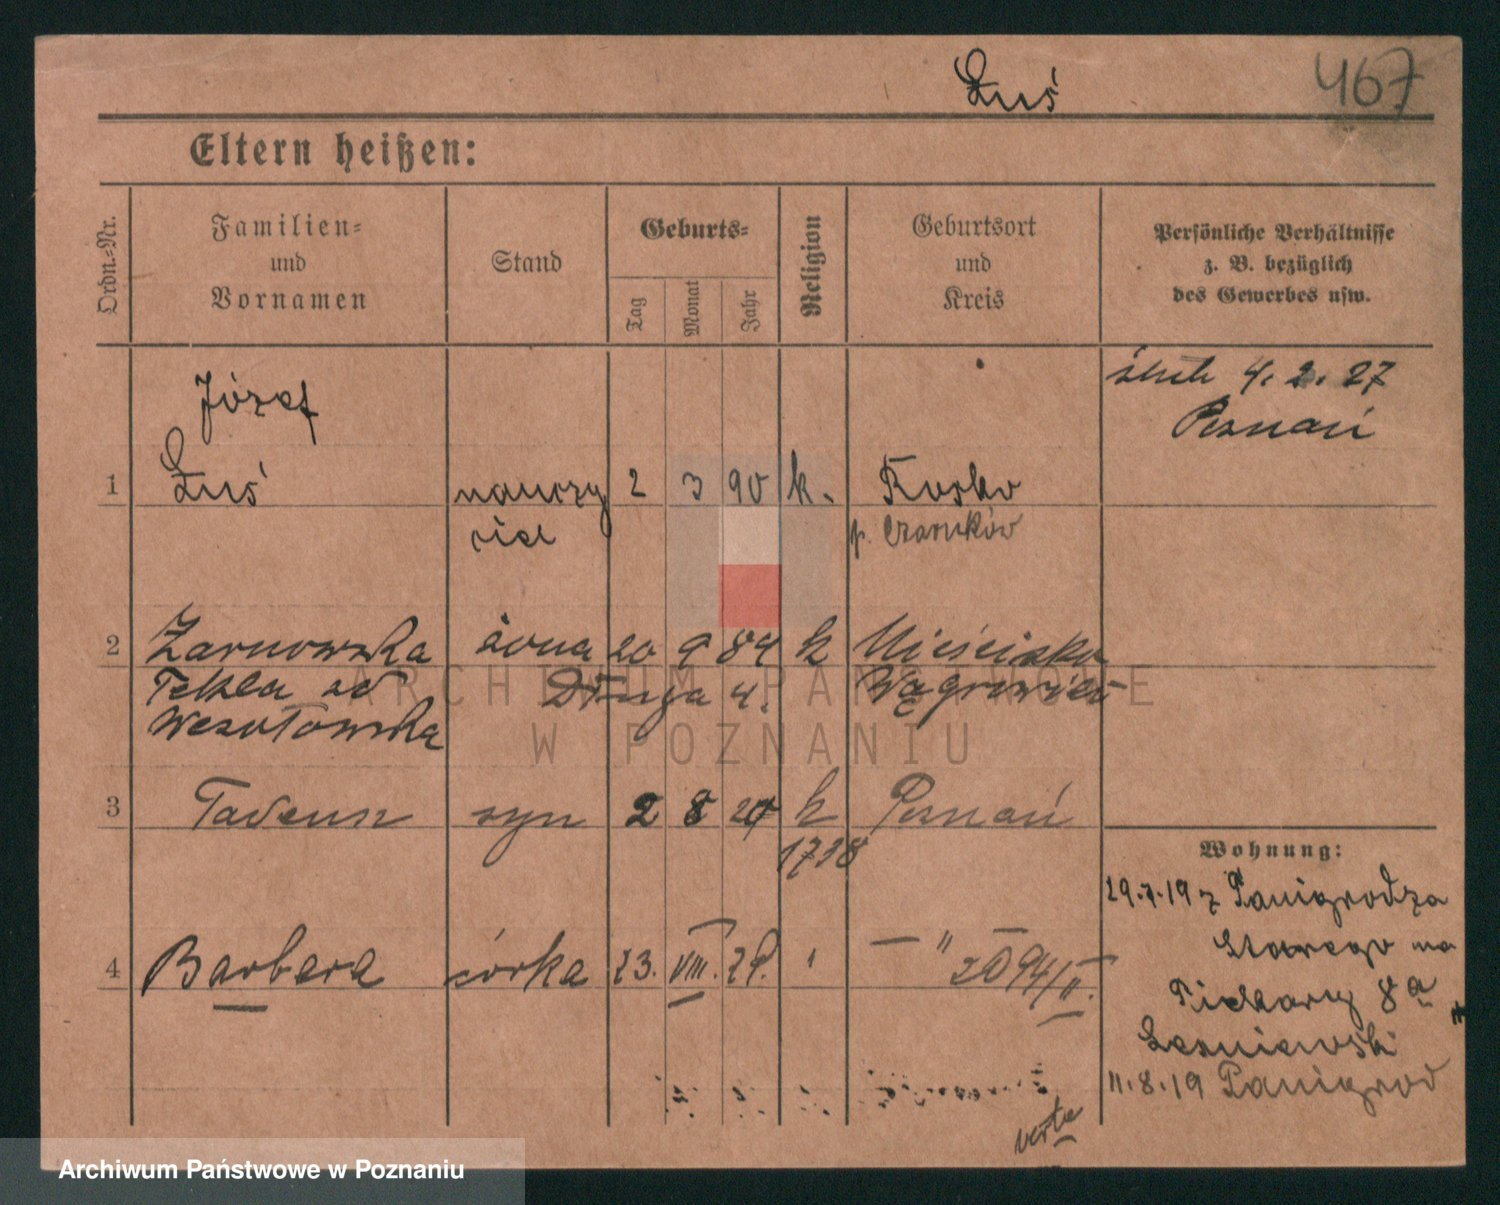 Luś 467
Eltern heißen:
Ordn.-Nr.
Familien-
und
Vornamen
Stand
Geburts-
Tag
Monat
Jahr
Religion
Geburtsort
und
Kreis
Persönliche Verhältnisse
z. B. bezüglich
des Gewerbes usw.
4. 2. 27
Poznań
Józef
1 Luś nauczy 2 3 90 k. Rosko
ciel p. Czarnków
2 Żarnowska żona 20 9 84 k Mieścisko
Tekla zd Długa 4. Wągrowiec
Wesołowska
3 Tadeusz syn 2 8 20 k Poznań
1738
4 Barbara córka 23. VIII. 29. " — " —
Wohnung:
29.7.19 z Panigrodza
Starego na
Piekary 8a
Leśniewski
11.8.19 Panigród
verte
ARCHIWUM PAŃSTWOWE
W POZNANIU
Archiwum Państwowe w Poznaniu